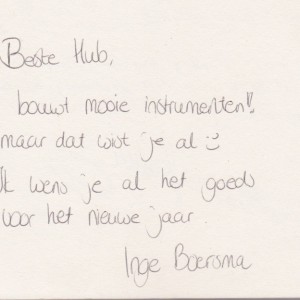 Beste Hub,
bouwt mooie instrumenten!!
maar dat wist je al :)
Ik wens je al het goeds
voor het nieuwe jaar.
Inge Boersma